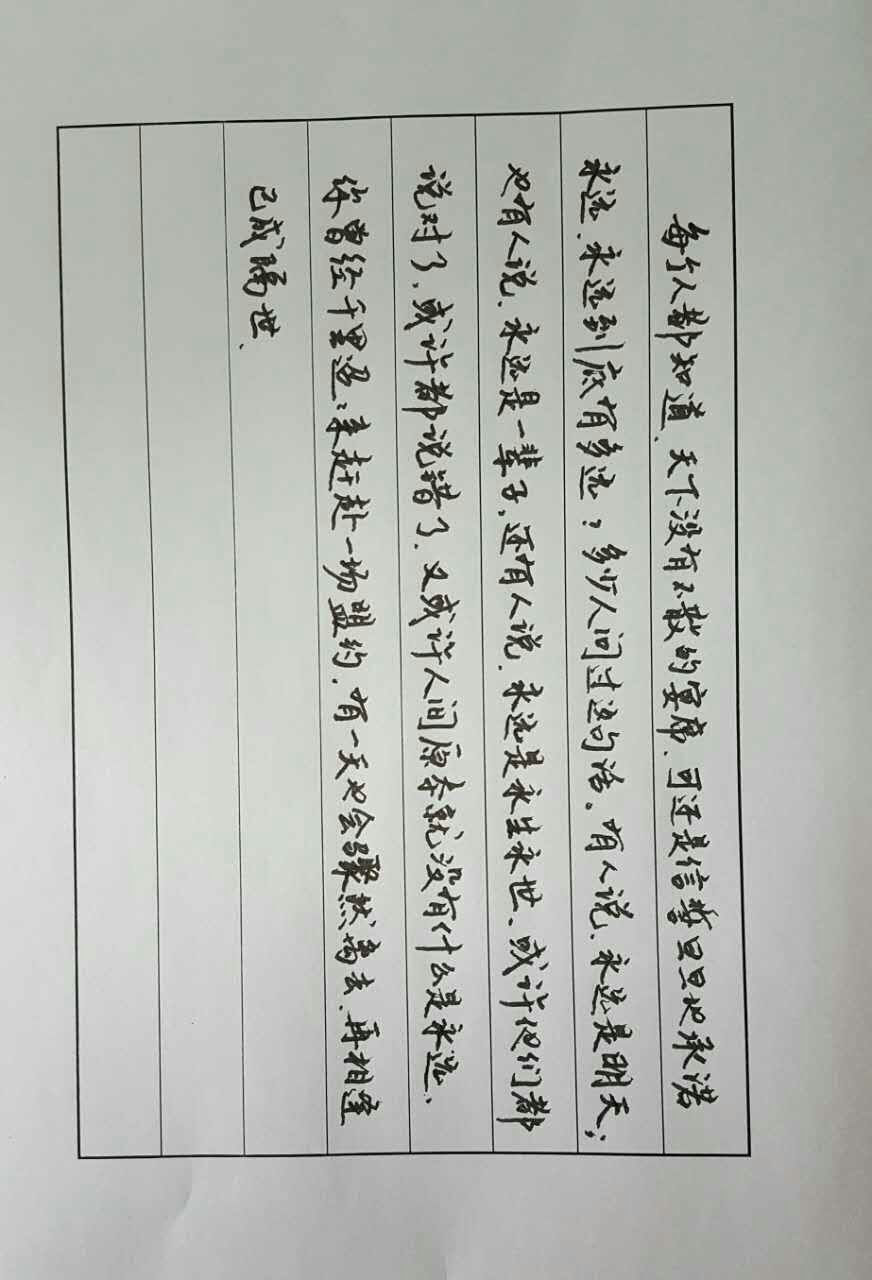 每个人都知道、天下没有不散的宴席、可还是信誓旦旦地承诺
永远、永远到底有多远？多少人问过这句话。有人说、永远是明天；
也有人说、永远是一辈子、还有人说、永远是永生永世、或许他们都
说对了、或许都说错了、又或许人间原本就没有什么是永远、
你曾经千里迢迢来赶赴一场盟约、有一天也会骤然离去、再相逢
已成隔世、